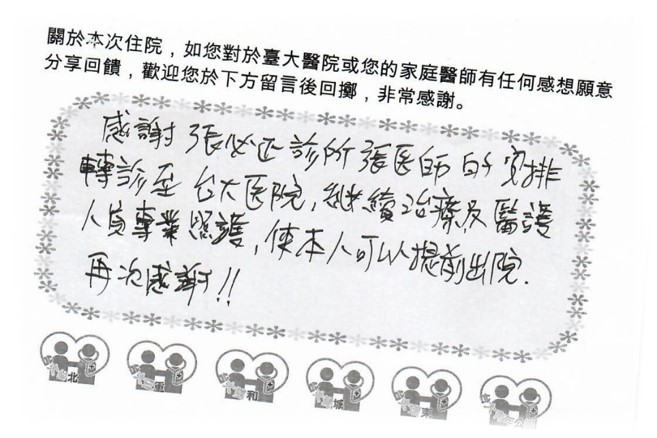 關於本次住院，如您對於臺大醫院或您的家庭醫師有任何感想願意
分享回饋，歡迎您於下方留言後回擲，非常感謝。
感謝張必正診所張医師的安排
轉診至台大医院，繼續治療及醫護
人員專業照護，使本人可以提前出院.
再次感謝!!
北
重
和
城
東